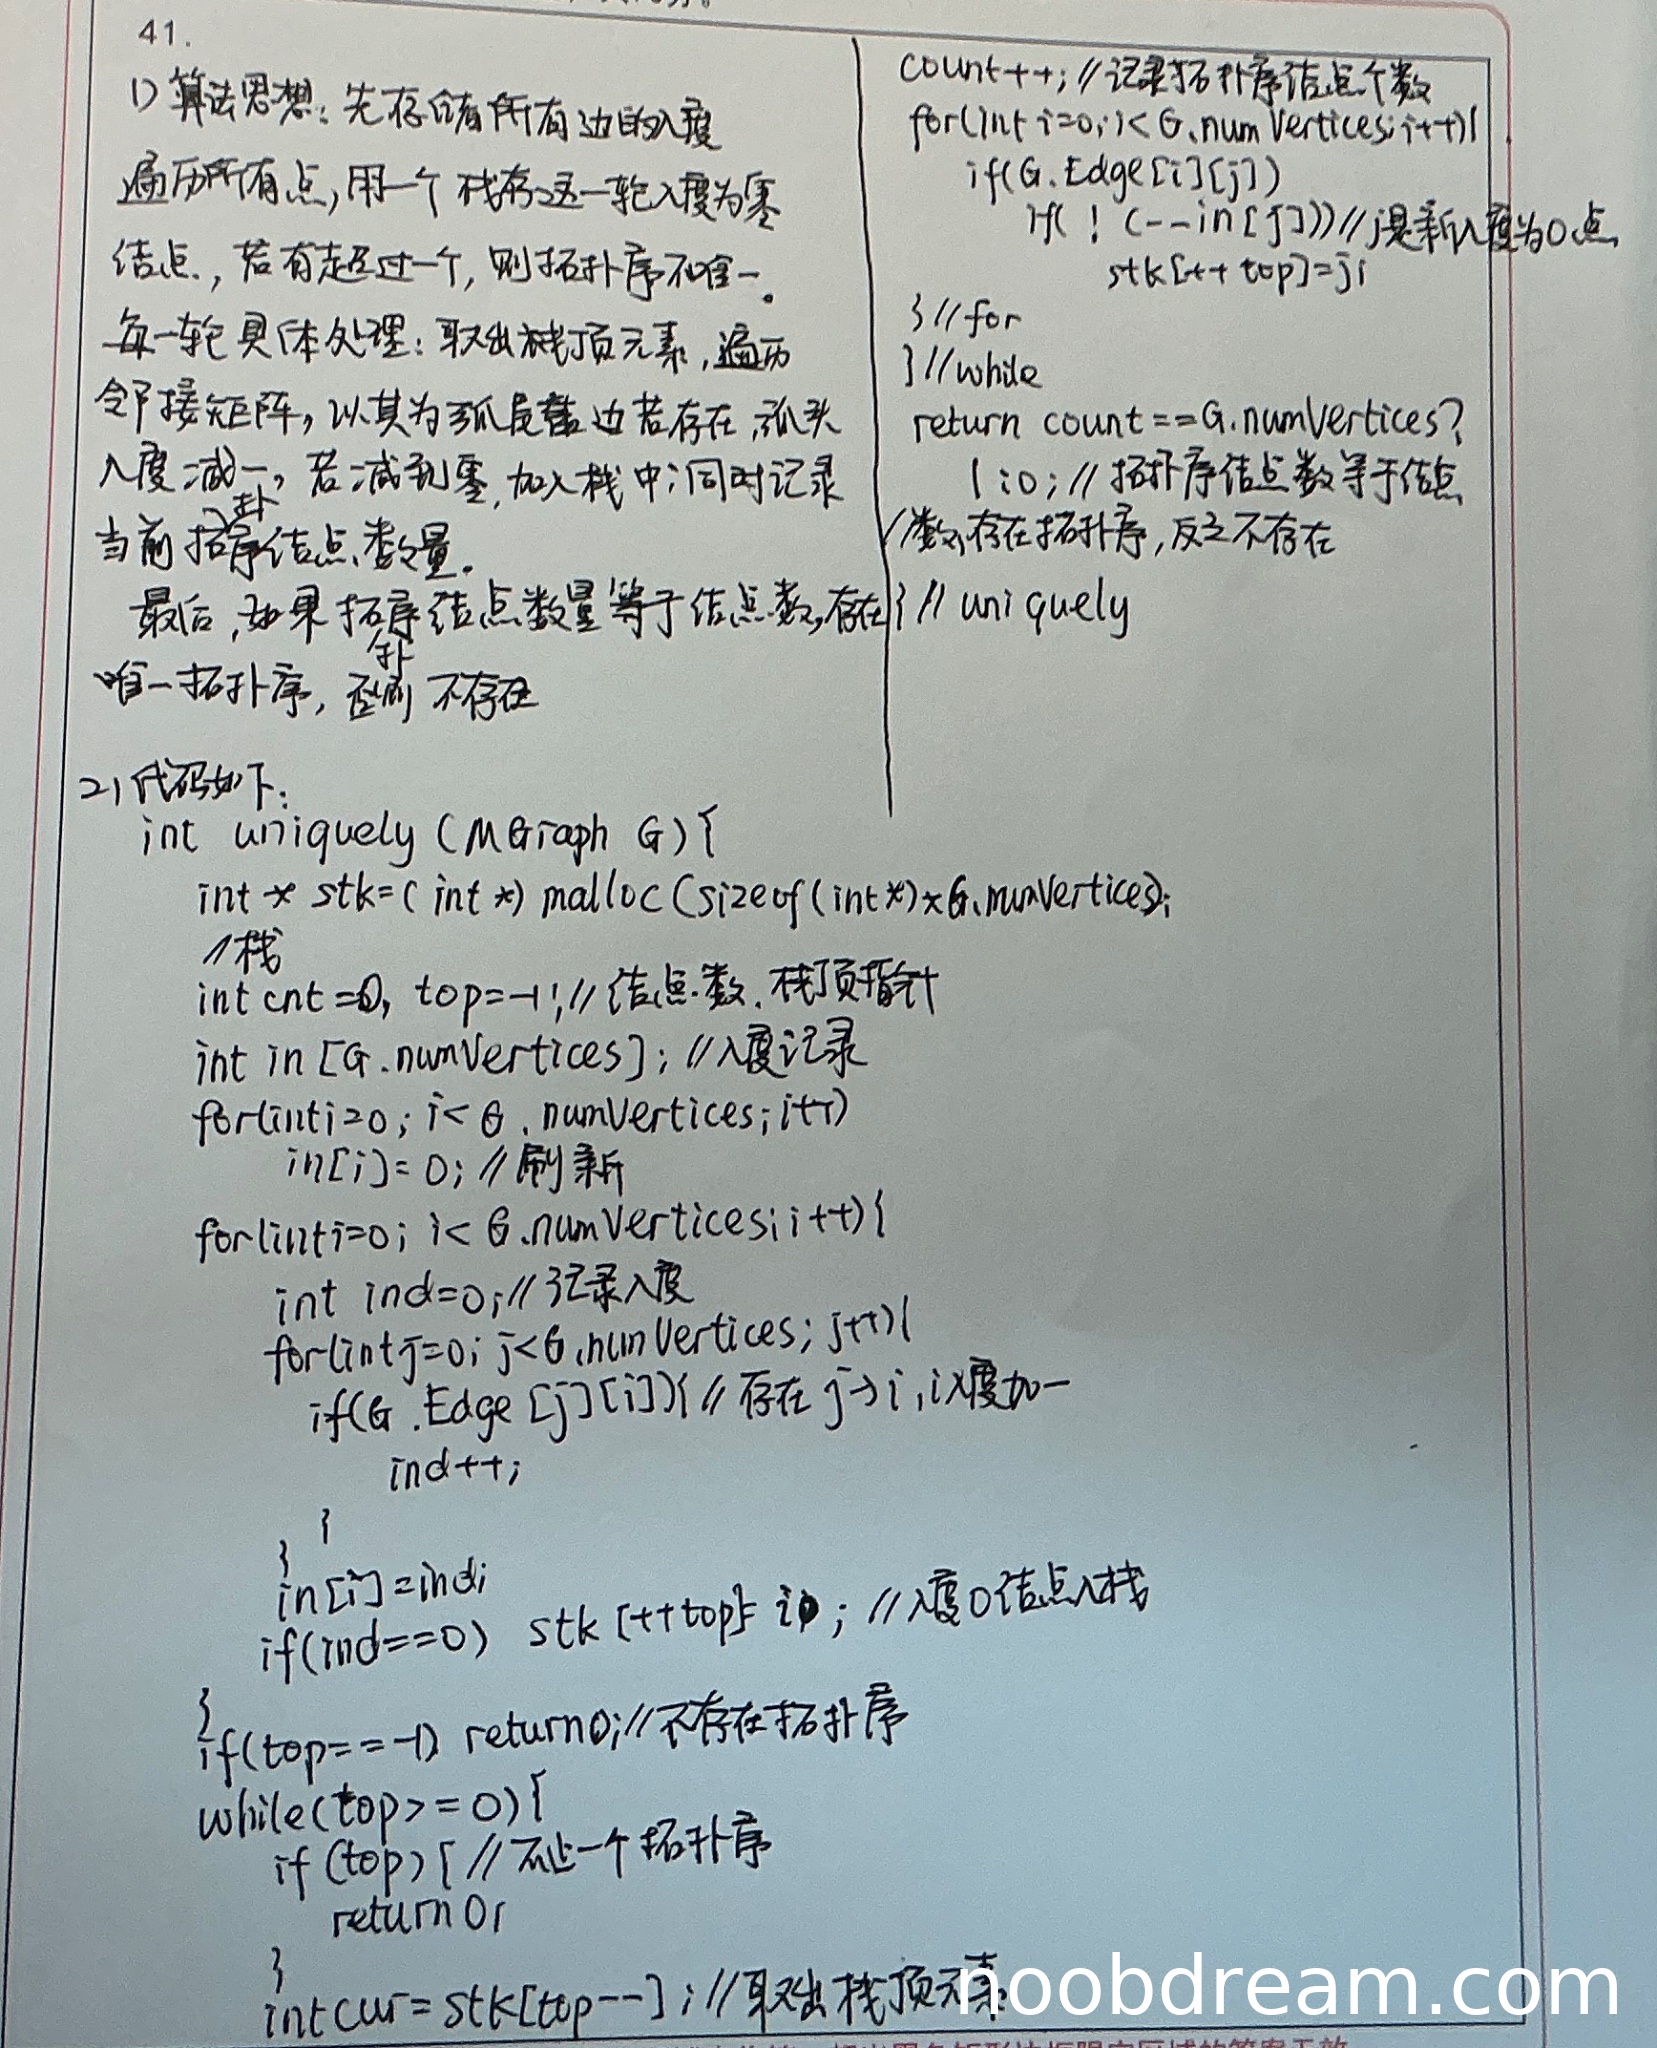 41.
1) 算法思想：先存储所有边的入度
遍历所有点,用一个栈存这一轮入度为零
结点,若有超过一个,则拓扑序不唯一。
每一轮具体处理：取出栈顶元素,遍历
邻接矩阵,以其为弧尾 边若存在,弧头
入度减一,若减到零,加入栈中;同时记录
当前拓扑序结点数量.
最后,如果拓扑序结点数量等于结点数,存在
唯一拓扑序,否则不存在
2) 代码如下:
int uniquely (MGraph G){
int * stk=(int *) malloc(sizeof(int*)*G.numVertices);
//栈
int cnt=0, top=-1;//结点数.栈顶指针
int in[G.numVertices]; //入度记录
for(int i=0; i<G.numVertices; i++)
in[i]=0; //刷新
for(int i=0; i<G.numVertices; i++){
int ind=0;//记录入度
for(int j=0; j<G.numVertices; j++){
if(G.Edge[j][i]){//存在j→i,i入度加一
ind++;
}
}
in[i]=ind;
if(ind==0) stk[++top]=i; //入度0结点入栈
}
if(top==-1) return 0;//不存在拓扑序
while(top>=0){
if(top){//不止一个拓扑序
return 0;
}
int cur=stk[top--];//取出栈顶元素
count++;//记录拓扑序结点个数
for(int i=0;i<G.numVertices;i++){
if(G.Edge[i][j])
if(!(--in[j]))//j是新入度为0点
stk[++top]=j;
}//for
}//while
return count==G.numVertices?
1:0;//拓扑序结点数等于结点
//数,存在拓扑序,反之不存在
}//uniquely
noobdream.com